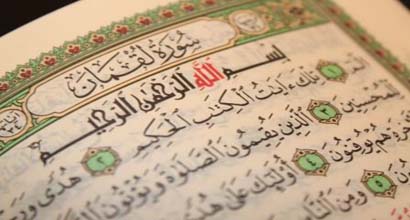 سُورَةُ لُقْمَانَ
بِسْمِ اللَّهِ الرَّحْمَٰنِ الرَّحِيمِ
الٓمٓ ١ تِلْكَ ءَايَٰتُ الْكِتَٰبِ الْحَكِيمِ ٢ هُدًى
لِّلْمُحْسِنِينَ ٣ الَّذِينَ يُقِيمُونَ الصَّلَوٰةَ وَيُؤْتُونَ
هُمْ يُوقِنُونَ ٤ أُوْلَٰٓئِكَ عَلَىٰ هُدًى
٥ وَمِنَ النَّاسِ